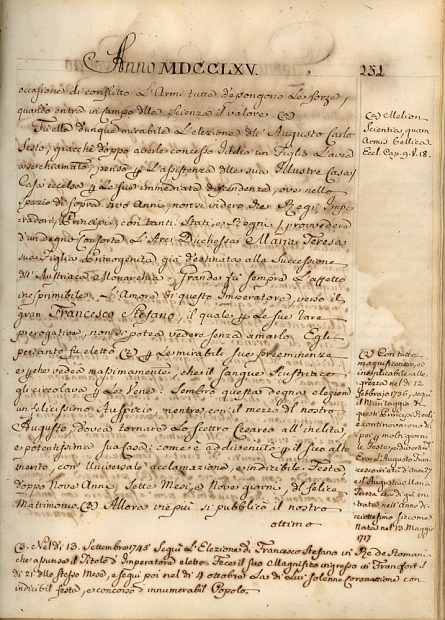 Anno MDCCLXV.
231
occasione di conflitto L'Armi tutte depongono Le forze,
quando entra in campo della Scienza il valore.
Fù ella dunque mirabile L'elezione dell' Augusto Carlo
Sesto, giacchè doppo avele concesso Iddio un Figlio L'avea
a se chiamato, pensò q̃ L'assistenza della sua Illustre Casa
Casa eccelsa q̃ Le sue immediate descendenze, ove nello
spazio di sopra 400 Anni, non si videro che Regi, Impe-
radori, Principi, con tanti Stati, e Regni, provederà
d'un degno Consorte L'Arci-Duchessa Maria Teresa
sua Figlia Primogenita già destinata alla Successione
dell' Austriaca Monarchia. Grande fù sempre e affetto
inesprimibile, L'Amore di questo Imperatore, verso il
gran Francesco Stefano, il quale q̃ Le sue rare
prerogative, non si potea vedere senza amarlo. Egli
pertanto fù eletto q̃ Le mirabili sue preeminenze
e perche vedea massimamente, che il sangue Austriaco
gli circolava q̃ Le Vene: Sembrò questa degna elezione
un felicissimo Auspicio, mentre con il mezzo del nostro
Augusto, dovea tornare Lo scettro Cesareo all' inclita,
e potentissima sua Casa: come è addivenuto q̃ il suo alto
merito, con Universale acclamazione, e indicibile Festa
doppo Nove Anni, Sette Mesi, e Nove giorni, del felice
Matrimonio. Allora vie più si pubblicò il nostro
ottimo
Melior est
Scientia, quam
Arma bellica.
Eccl. Cap. 9. v. 18.
Con tutta
magnificenza, ed
inesplicabile alle-
grezza nel dì 12
Febbrajo 1736, seguì
il Maritaggio di
questi Principi Reali,
e continovarono di
poi molti giorni
le Feste
nata nel 13 Maggio
1717
Nel dì 13. Settembre 1745 Seguì L'Elezione di Francesco Stefano in Rè de Romani
che assunse il Titolo d'Imperatore eletto. Fece il suo Magnifico ingresso in Francfort il
dì 21 dello stesso Mese, e seguì poi nel dì 4 ottobre La di Lui solenne Coronazione con
indicibil festa, e concorso d'innumerabil Popolo.